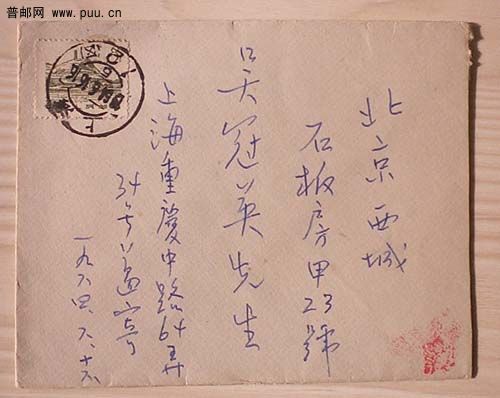 普邮网 www.puu.cn
北京西城
石板房甲23號
吴冠英先生
上海重慶中路64弄
34号 寄
一九六四.六.十六